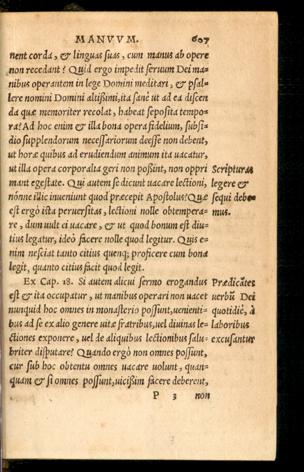 MANVVM. 607
nent corda, & linguas suas, cum manus ab opere
non recedant? Quid ergo impedit seruum Dei ma-
nibus operantem in lege Domini meditari, & psal-
lere nomini Domini altissimi, ita sanè ut ad ea discen
da quæ memoriter recolat, habeat seposita tempo-
ra? Ad hoc enim & illa bona opera fidelium, subsi-
dio supplendorum necessariorum deesse non debent,
ut horæ quibus ad erudiendum animum ita uacatur,
ut illa opera corporalia geri non possint, non oppri
mant egestate. Qui autem se dicunt uacare lectioni,
nónne illic inueniunt quod præcepit Apostolus? Quæ
est ergò ista peruersitas, lectioni nolle obtempera-
re, dum uult ei uacare, & ut quod bonum est diu-
tius legatur, ideò facere nolle quod legitur. Quis e-
nim nesciat tanto citius quenq; proficere cum bona
legit, quanto citius facit quod legit.
Scripturas
legere &
sequi debe-
mus.
Ex Cap. 18. Si autem alicui sermo erogandus
est & ita occupatur, ut manibus operari non uacet
nunquid hoc omnes in monasterio possunt, uenienti-
bus ad se ex alio genere uitæ fratribus, uel diuinas le-
ctiones exponere, uel de aliquibus lectionibus salu-
briter disputare? Quando ergò non omnes possunt,
cur sub hoc obtentu omnes uacare uolunt, quan-
quam & si omnes possunt, uicissim facere deberent,
Prædicãtes
uerbũ Dei
quotidiè, à
laboribus
excusantur
P 3 non